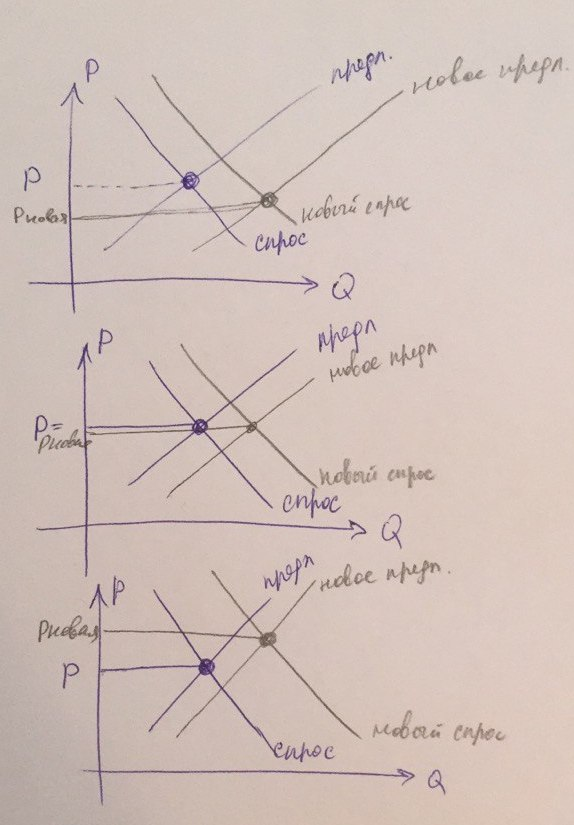 P
предл.
новое предл.
P
Pновая
новый спрос
спрос
Q
P
предл
новое предл
P=
Pновая
новый спрос
спрос
Q
P
предл
новое предл.
Pновая
P
новый спрос
спрос
Q